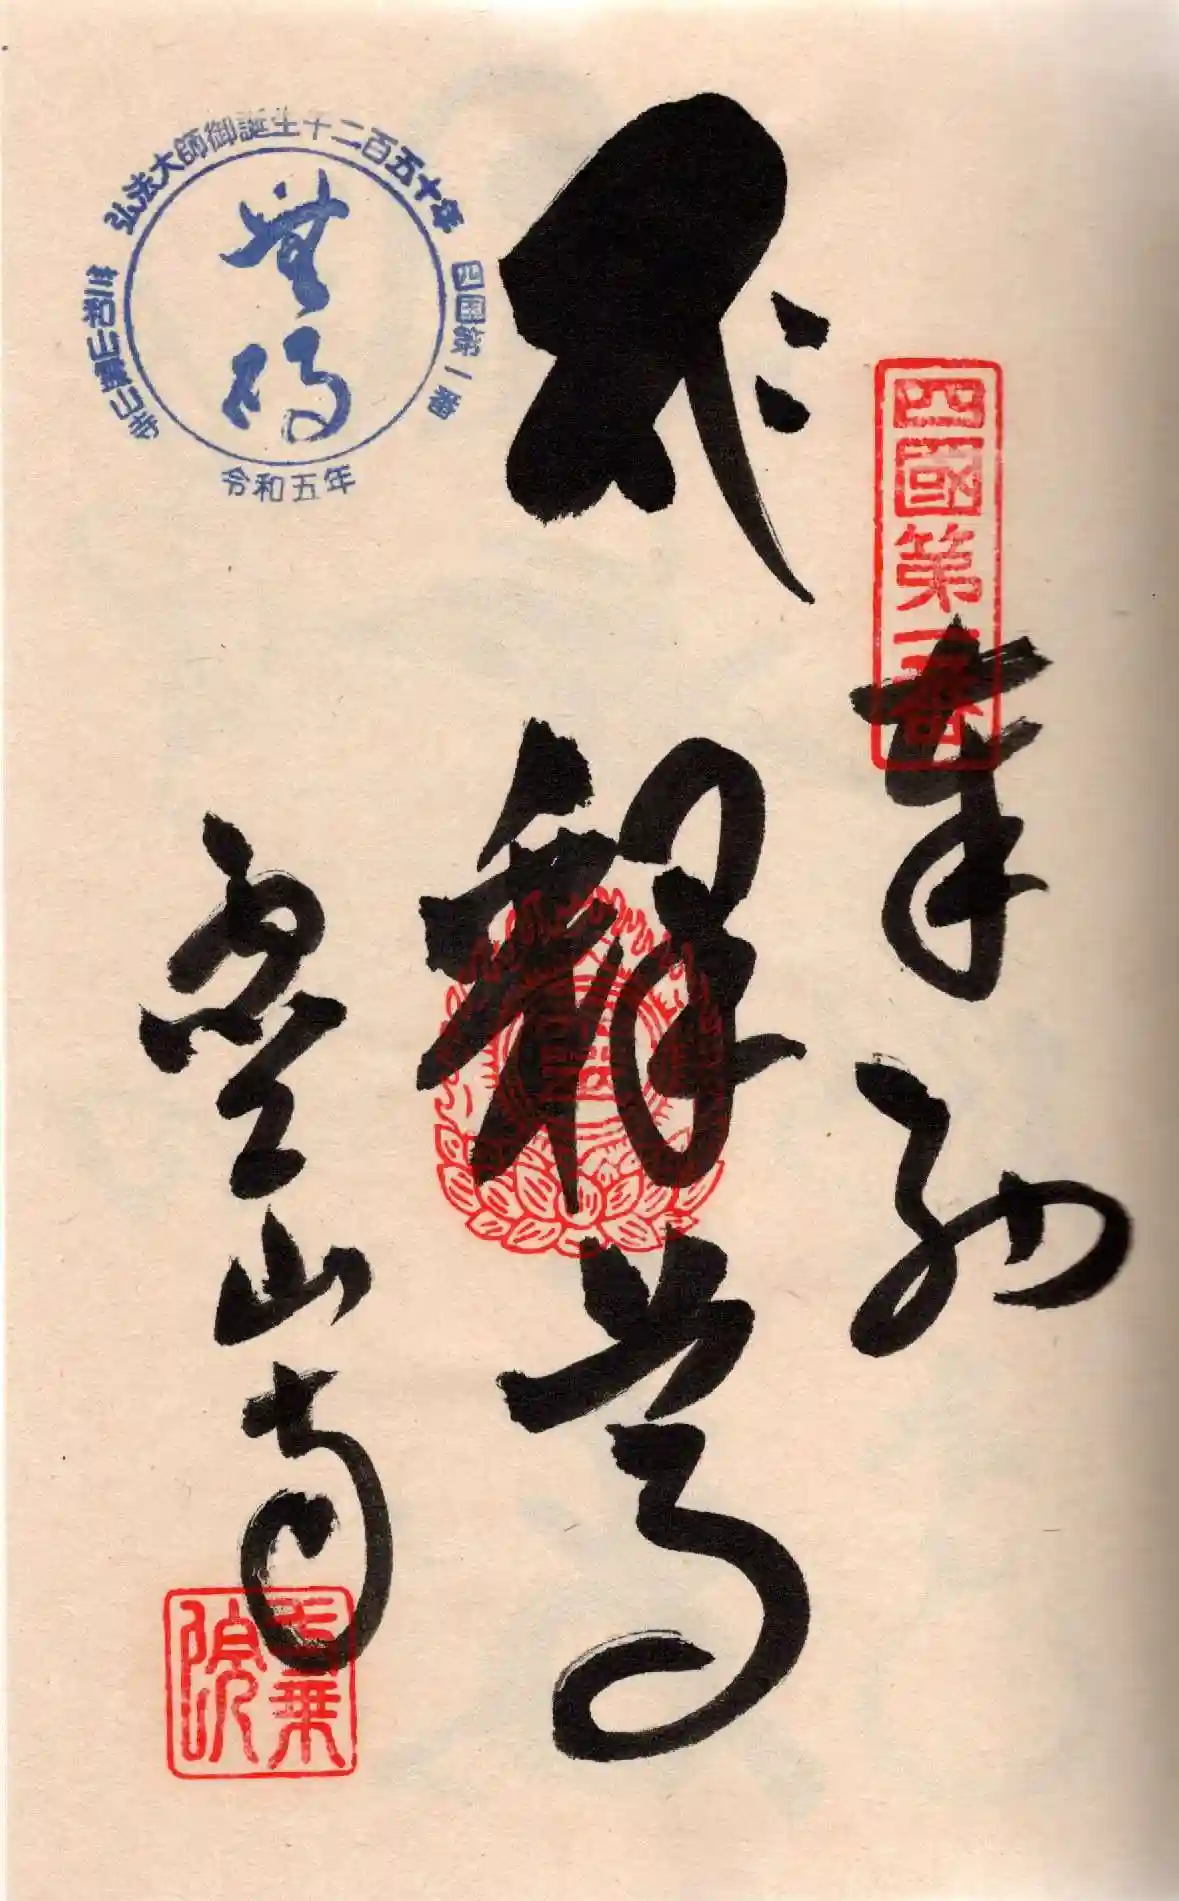 四國第一番
奉納
釋尊
霊山寺
一乗院
弘法大師御誕生千二百五十年
四国第一番
竺和山霊山寺
令和五年